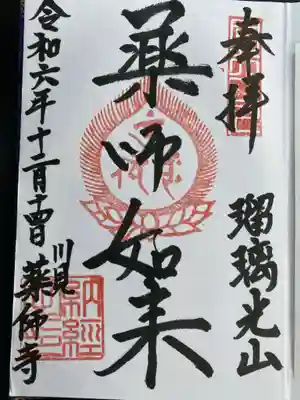 奉拝
瑠璃光山
薬師如来
令和六年十二月十四日
川見
薬師寺
納経